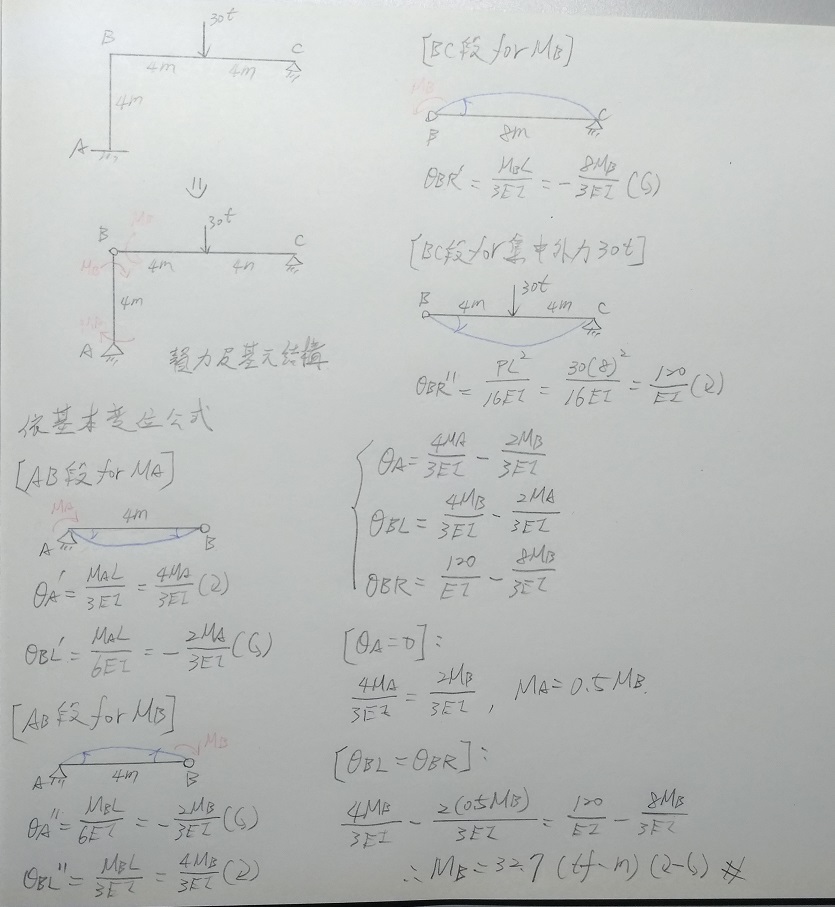 30t
B
C
4m
4m
4m
A
||
30t
B
MB
C
MB
4m
4m
4m
MA
A
贅力及基元結構
依基本變位公式
[AB段 for MA]
MA
4m
A
B
θA' = MAL/3EI = 4MA/3EI (2)
θBL' = MAL/6EI = - 2MA/3EI (5)
[AB段 for MB]
MB
A
4m
B
θA'' = MBL/6EI = - 2MB/3EI (5)
θBL'' = MBL/3EI = 4MB/3EI (2)
[BC段 for MB]
MB
B
C
8m
θBR' = MBL/3EI = - 8MB/3EI (5)
[BC段 for 集中外力30t]
30t
B
4m
4m
C
θBR'' = PL²/16EI = 30(8)²/16EI = 120/EI (2)
θA = 4MA/3EI - 2MB/3EI
θBL = 4MB/3EI - 2MA/3EI
θBR = 120/EI - 8MB/3EI
[θA=0]:
4MA/3EI = 2MB/3EI , MA=0.5MB.
[θBL=θBR]:
4MB/3EI - 2(0.5MB)/3EI = 120/EI - 8MB/3EI
∴ MB=32.7 (tf-m) (2-5) #